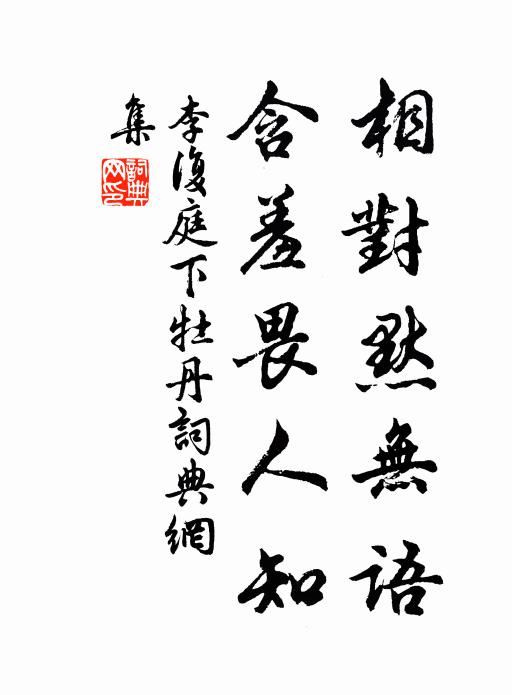 相對默無語
含羞畏人知
李復庭下牡丹詞典網
集
詞典
網印